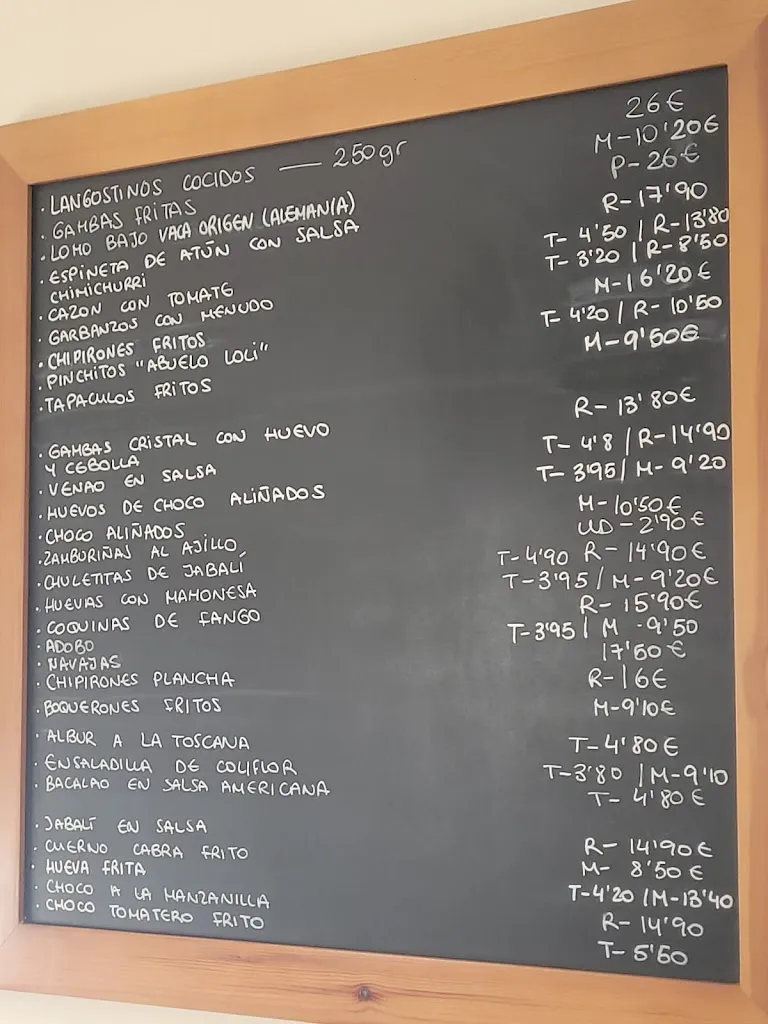 · LANGOSTINOS COCIDOS — 250gr 26€
· GAMBAS FRITAS M-10'20€
· LOMO BAJO VACA ORIGEN (ALEMANIA) P-26€
· ESPINETA DE ATÚN CON SALSA R-17'90
CHIMICHURRI
· CAZON CON TOMATE T-4'50 / R-13'80
· GARBANZOS CON MENUDO T-3'20 / R-8'50
· CHIPIRONES FRITOS M-16'20€
· PINCHITOS "ABUELO LOLI" T-4'20 / R-10'50
· TAPACULOS FRITOS M-9'50€
· GAMBAS CRISTAL CON HUEVO R-13'80€
Y CEBOLLA
· VENAO EN SALSA T-4'8 / R-14'90
· HUEVOS DE CHOCO ALIÑADOS T-3'95 / M-9'20
· CHOCO ALIÑADOS M-10'50€
· ZAMBURIÑAS AL AJILLO UD-2'90€
· CHULETITAS DE JABALÍ T-4'90 R-14'90€
· HUEVAS CON MAHONESA T-3'95 / M-9'20€
· COQUINAS DE FANGO R-15'90€
· ADOBO T-3'95 / M-9'50
· NAVAJAS 17'50€
· CHIPIRONES PLANCHA R-16€
· BOQUERONES FRITOS M-9'10€
· ALBUR A LA TOSCANA T-4'80€
· ENSALADILLA DE COLIFLOR T-3'80 / M-9'10
· BACALAO EN SALSA AMERICANA T-4'80€
· JABALÍ EN SALSA R-14'90€
· CUERNO CABRA FRITO M-8'50€
· HUEVA FRITA T-4'20 / M-13'40
· CHOCO A LA MANZANILLA R-14'90
· CHOCO TOMATERO FRITO T-5'50